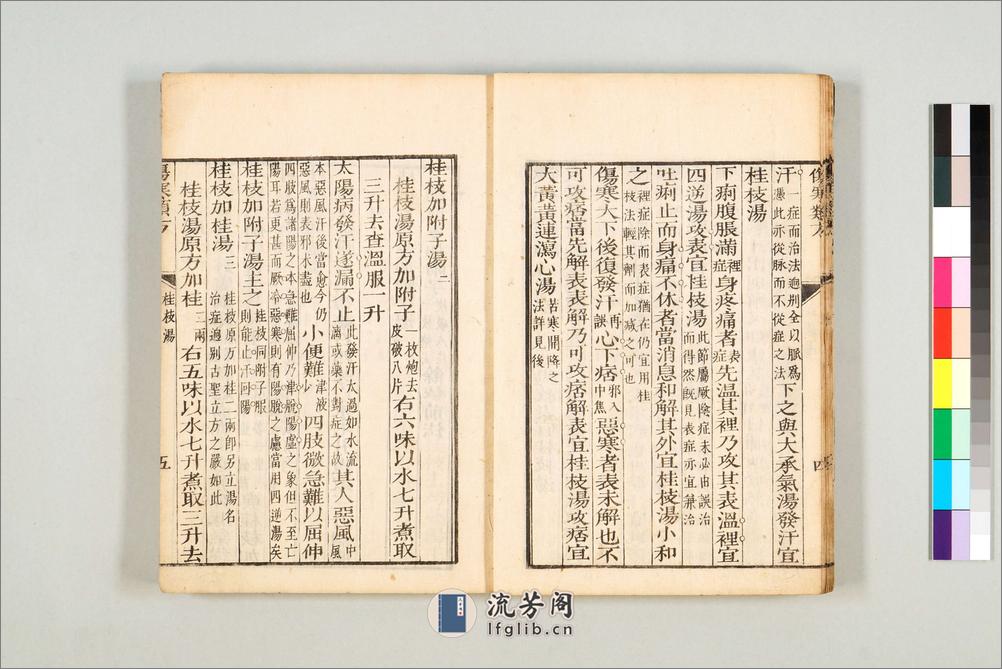 傷寒類方
四
汗一症而治法迥別全以脈為憑此亦從脈而不從症之法下之與大承氣湯發汗宜
桂枝湯
下痢腹脹滿裡症身疼痛者表症先溫其裡乃攻其表溫裡宜
四逆湯攻表宜桂枝湯此節屬厥陰症未必由誤治而得然既見表症亦宜兼治
吐痢止而身痛不休者當消息和解其外宜桂枝湯小和
之裡症除而表症猶在仍宜用桂枝法輕其劑而加減之可也
傷寒大下後復發汗再誤心下痞邪入中焦惡寒者表未解也不
可攻痞當先解表表解乃可攻痞解表宜桂枝湯攻痞宜
大黃黃連瀉心湯苦寒開降之法詳見後
桂枝加附子湯二
桂枝湯原方加附子一枚炮去皮破八片右六味以水七升煮取
三升去查溫服一升
太陽病發汗遂漏不止此發汗太過如水流漓或藥不對症之故其人惡風中風
本惡風汗後當愈今仍惡風則表邪未盡也小便難津液少四肢微急難以屈伸
四肢為諸陽之本急難屈伸乃津脫陽虛之象但不至亡陽耳若更甚而厥冷惡寒則有陽脫之慮當用四逆湯矣
桂枝加附子湯主之桂枝同附子服則能止汗回陽
桂枝加桂湯三桂枝原方加桂二兩卽另立湯名治症迥別古聖立方之嚴如此
桂枝湯原方加桂二兩右五味以水七升煮取三升去
傷寒類方
桂枝湯
五
流芳阁
lfglib.cn